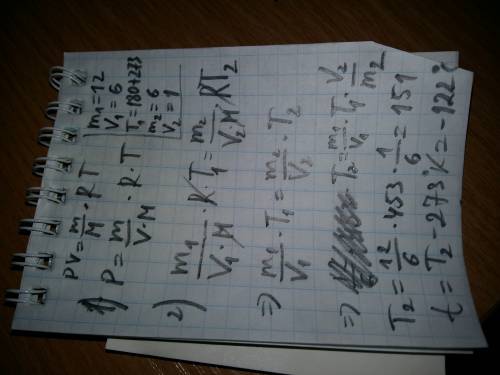 PV = m/M · RT
1) P = m/(V·M) · R · T
m₁ = 12
V₁ = 6
T₁ = 180+273
m₂ = 6
V₂ = 1
2) m₁/(V₁·M) · R · T₁ = m₂/(V₂·M) · RT₂
=> m₁/V₁ · T₁ = m₂/V₂ · T₂
=> T₂ = m₁/V₁ · T₁ · V₂/m₂
T₂ = 12/6 · 453 · 1/6 = 151
t = T₂ - 273°K = -122